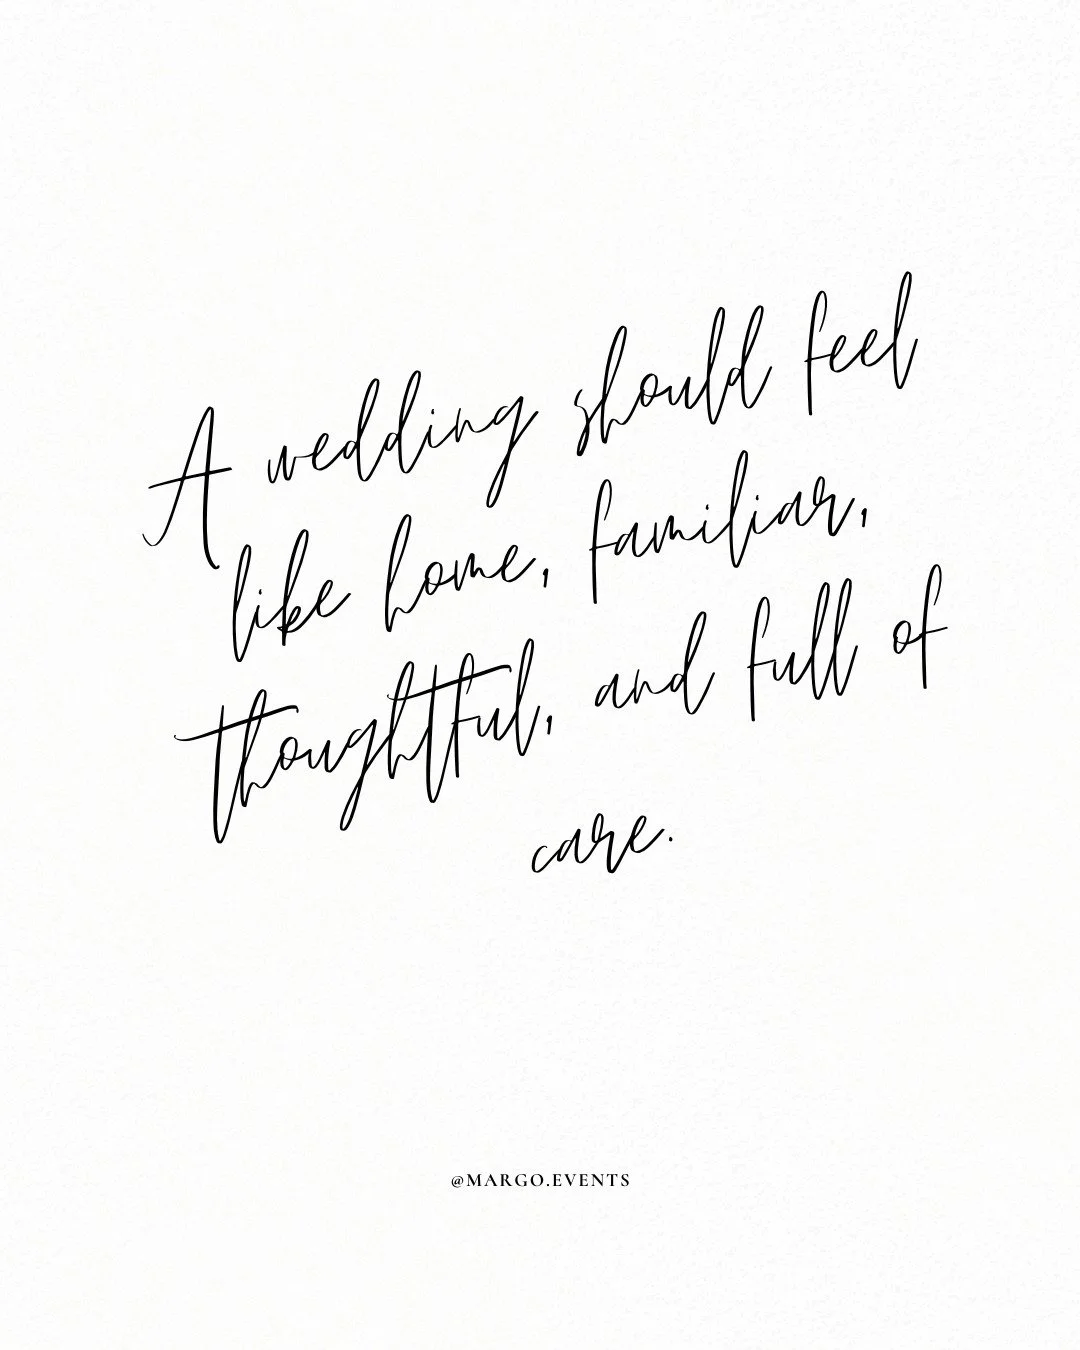 A wedding should feel
like home, familiar,
thoughtful, and full of
care.
@MARGO.EVENTS